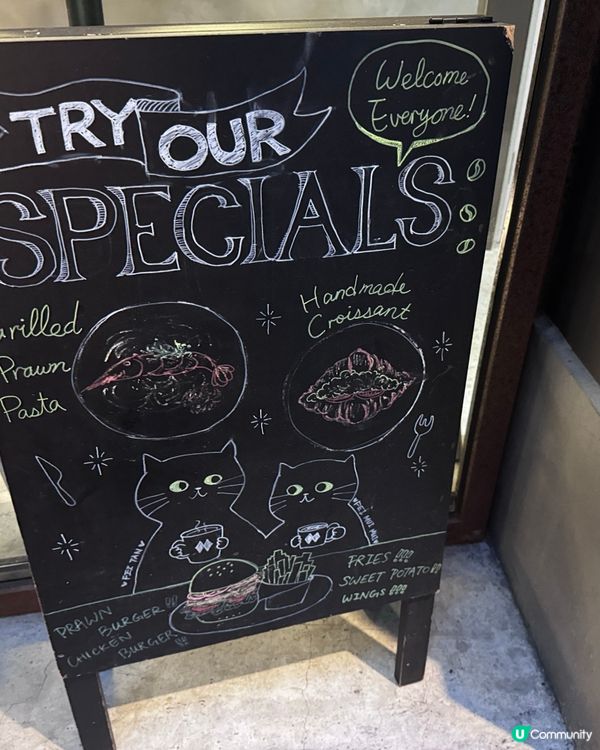 TRY OUR
SPECIALS
Welcome
Everyone!
rilled
Prawn
Pasta
Handmade
Croissant
PRAWN
BURGER!!
CHICKEN
BURGER!!
FRIES !!!
SWEET POTATO!!
WINGS !!!
U Community